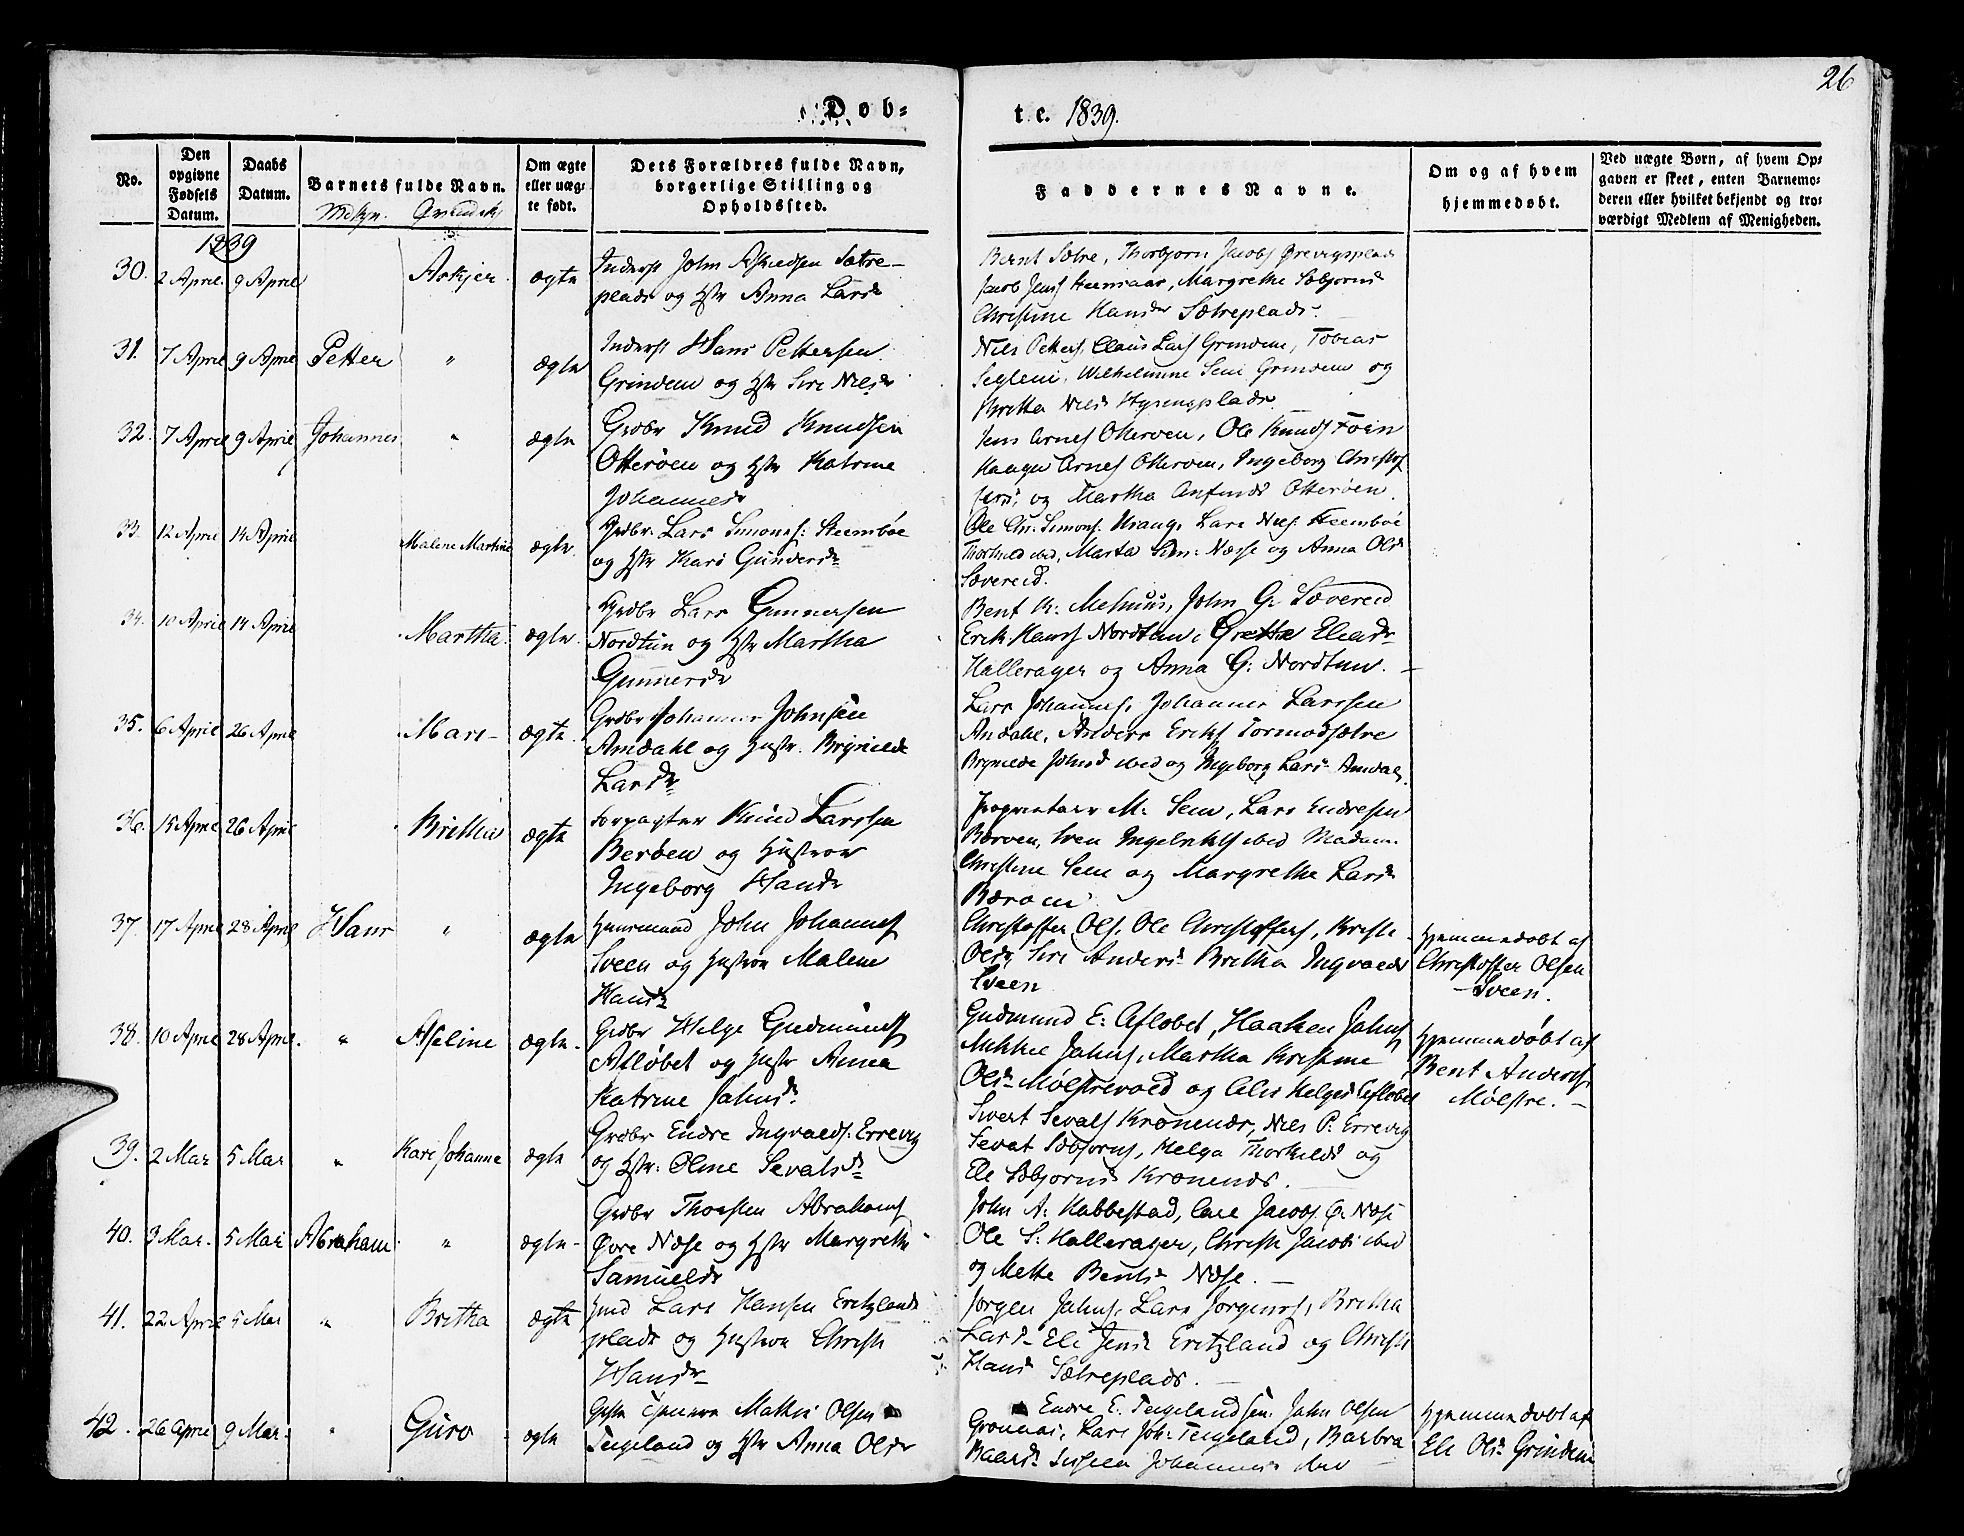 26
Døb=
te. 1839.
No.
Den opgivne Fødsels Datum.
Daabs Datum.
Barnets fulde Navn.
Mdkjn. Qvindekj
Om ægte eller uæg= te født.
Dets Forældres fulde Navn, borgerlige Stilling og Opholdssted.
Faddernes Navne.
Om og af hvem hjemmedøbt.
Ved uægte Børn, af hvem Op= gaven er skeet, enten Barnemo= deren eller hvilket bekjendt og tro= værdigt Medlem af Menigheden.
1839
30. 2 April 9 April Askjer ægte
Inderst John Askjedsen Sætre-
plads og Hstr Anna Larsdr
Bernt Sætre, Thorbjørn Jacobs
Jacob Jens, Margrethe Sæbjørnsd
Christine Hansdr Sætreplads.
31. 7 April 9 April Petter " ægte
Inderst Hans Pettersen
Grindem og Hstr Siri Nielsdr
Niels Petters, Claus Lars Grindem, Tobias
Seglem, Wilhelmine Sem Grindem og
Britta Nielsd
32. 7 April 9 April Johannes " ægte
Grdbr Knud Knudsen
Otterøen og Hstr Katrine
Johannesdr
Jens Arnes Otterøen, Ole Knuds Foien
Haagen Arnes Otterøen, Ingeborg Christof
fersd og Martha Anfindsd Otterøen.
33. 12 April 14 April Malene Martine ægte
Grdbr. Lars Simons: Steensbøe
og Hstr Kari Gundersdr
Ole Chr. Simons. Vrang, Lars Niels: Steensbøe
Thorkild ibid, Marta Sim: Næsse og Anna Olsd
Sævereid.
34. 10 April 14 April Martha ægte
Grdbr Lars Gunnersen
Nordtun og Hstr Martha
Gunnersdr
Bent K. Melhuus, John G. Sævereid
Erik Hans Nordtun, Grethe Eliasdr
Hallerager og Anna G: Nordtun.
35. 6 April 26 April Mari ægte
Grdbr Johannes Johnsen
Amdahl og Hustr. Brynilde
Larsdr
Lars Johannes, Johannes Larssen
Amdahl, Anders Eriks Tormodsætre
Brynilde Johnsd ibid og Ingeborg Larsd Amdal.
36. 15 April 26 April Britha ægte
Forpagter Knud Larssen
Berøen og Hustroe
Ingeborg Hansdr
Proprietair M. Sem, Lars Endresen
Børøen, Sven Ingebrikts ibid Madam
Christine Sem og Margrethe Larsdr
Børøen
37. 17 April 28 April Hans " ægte
Huusmand John Johannes
Sveen og Hustroe Malene
Hansdr
Christoffer Ols, Ole Christoffers, Kristi
Olsdr, Siri Andersd Britha Ingvaldsd
Sveen
Hjemmedøbt af
Christoffer Olsen
Sveen.
38. 10 April 28 April " Aseline ægte
Grdbr Helge Gudmunds
Afløbet og Hustr Anna
Katrine Jahnsd.
Gudmund E. Afløbet, Haaken Jahns
Mikkel Jahns, Martha Kristine
Olsd Mølstrevold og Helgesd Afløbet
Hjemmedøbt af
Bent Anders
Mølstre.
39. 2 Mai 5 Mai " Kari Johanne ægte
Grdbr Endre Ingvalds: Errevig
og Hstr: Oline Sevalsdr
Sivert Sevals Kronenæs, Niels P. Errevig
Sevat Sæbjørns, Helga Thorkildsd og
Eli Sæbjørnsd Kronenæs.
40. 3 Mai 5 Mai Abraham " ægte
Grdbr Thorsten Abrahams
Øvre Næse og Hstr Margrethe
Samuelsdr
John A. Habbestad, Lars Jacobs Ø. Næse
Ole S. Hallerager, Christi Jacobsd ibid
og Mette Bentsd Næse.
41. 22 April 5 Mai " Britha ægte
Hmd Lars Hansen Eritzlands
plads og Hustroe Christi
Hansdr
Jørgen Jahns, Lars Jørgens, Britha
Larsd Eli Jensd Eritzland og Christi
Hansd Sætreplads.
42. 26 April 9 Mai " Guro ægte
Mathis Olsen
Teigeland og Hstr Anna Olsdr
Endre E. Teigelandsen. Jahn Olsen
Grønnes, Lars Joh: Teigeland, Barbra
Baardsd Johannesd ibid
Hjemmedøbt af
Eli Olsd Grindem